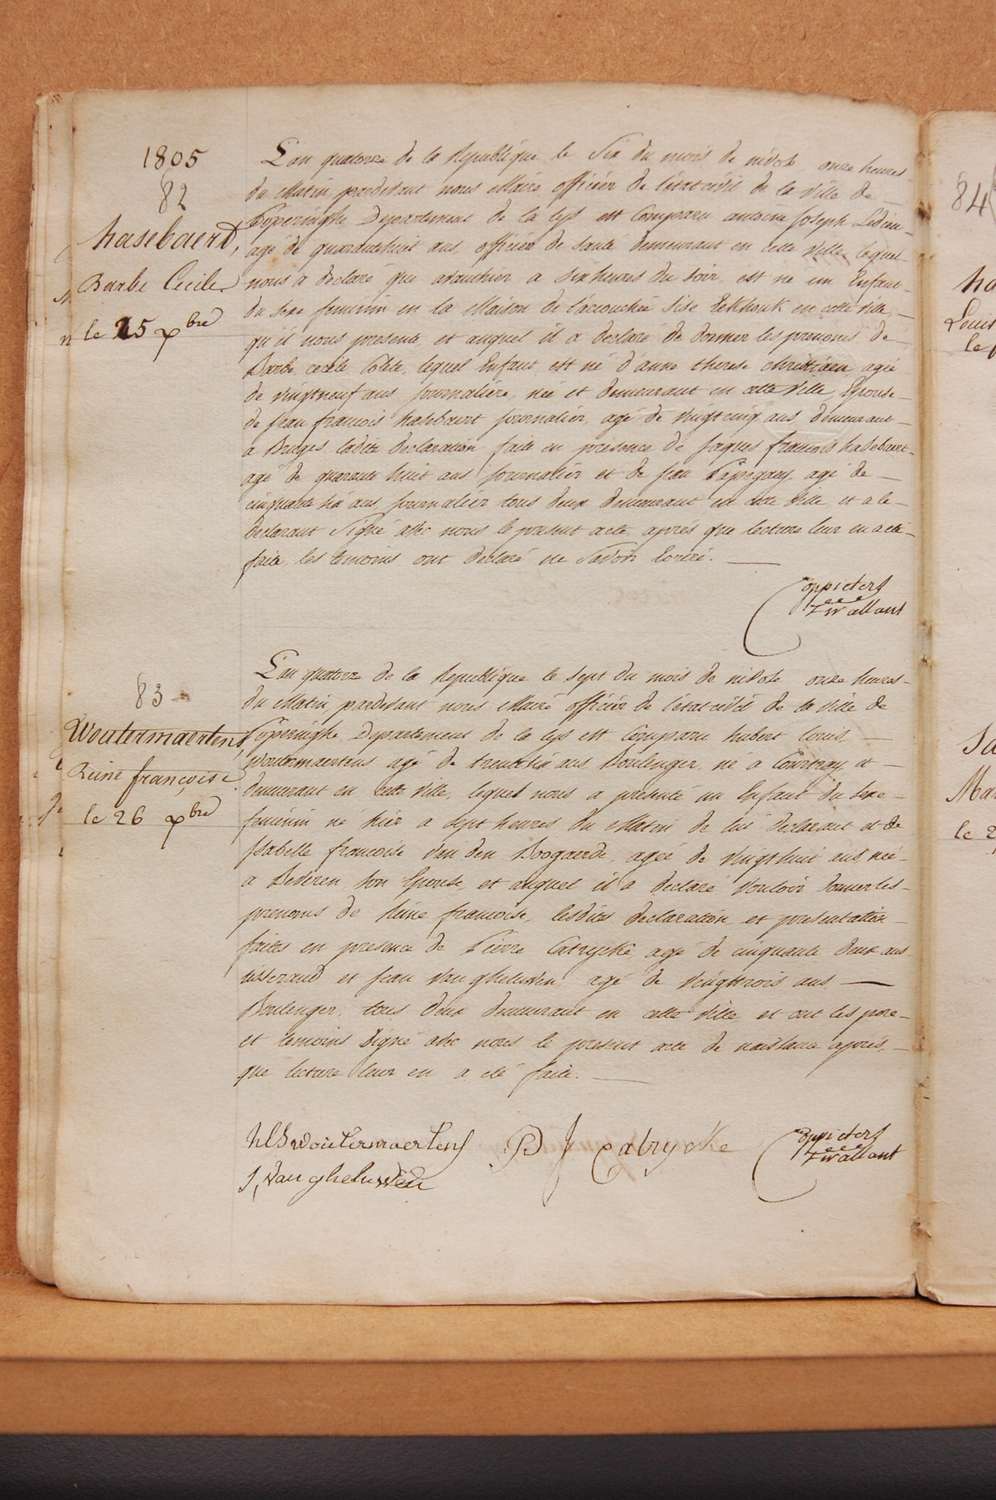 1805
82
hasebaert,
Barbe Cecile
le 25 Xbre
L'an quatorze de la Republique le Six du mois de nivose onze heures
du Matin pardevant nous Maire officier de l'etat civil de la ville de
Poperinghe Departement de la Lys est Comparu antoine Joseph
agé de quarantehuit ans, officier de Santé demeurant en cette ville, lequel
nous a declaré que avanthier a six heures du soir est né un Enfant
du sexe feminin en la Maison de l'accouchée Sise en cette ville,
qu'il nous presente et auquel il a declaré de donner les prenoms de
Barbe cecile Colete, lequel Enfant est né d'anne therese agée
de vingtneuf ans journaliere, née et demeurant en cette ville, Epouse
de jean francois hasebaert journalier, agé de vingtcinq ans, demeurant
a Bruges ladite declaration faite en presence de jaques francois hasebaert
agé de quarante huit ans journalier et de jean agé de
cinquante six ans journalier tous deux demeurant en cette ville et a le
declarant Signé avec nous le present acte après que lecture leur en a été
faite, les temoins ont declaré ne Savoir Ecrire.
Coppieters
tWallant
83
Woutermaertens,
Reine françoise
le 26 Xbre
L'an quatorze de la Republique le sept du mois de nivose onze heures
du Matin pardevant nous Maire officier de l'etat civil de la ville de
Poperinghe Departement de la Lys est Comparu hubert louis
Woutermaertens agé de trentesix ans Boulenger, né a Courtray et
demeurant en cette ville, lequel nous a presenté un Enfant du sexe
feminin né hier a sept heures du Matin de lui declarant et de
Isabelle francoise Van den Boogaerde, agée de vingthuit ans née
a Bederen son Epouse, et auquel il a declaré vouloir donner les
prenoms de Reine francoise, lesdites declaration et presentation
faites en presence de Pierre Catrycke agé de cinquante deux ans
tisserand et jean Van gheluwen agé de vingttrois ans
Boulenger, tous deux demeurant en cette ville et ont les pere
et temoins Signé avec nous le present acte de naissance après
que lecture leur en a été faite.
hLWoutermaertens PJ Catrycke Coppieters
tWallant
J, Van gheluwen
84